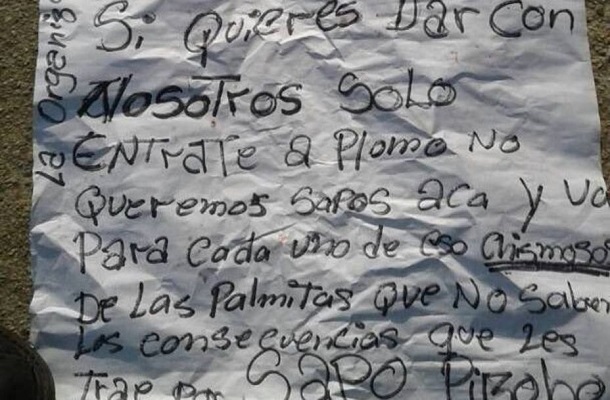 Si Quieres Dar Con
Nosotros SoLo
ENTrATe a Plomo No
Queremos sapos aca y
Para cada uno de eso chismoso
De Las Palmitas que No Saben
Las consecuencias que Les
Trae SAPO
La organiz